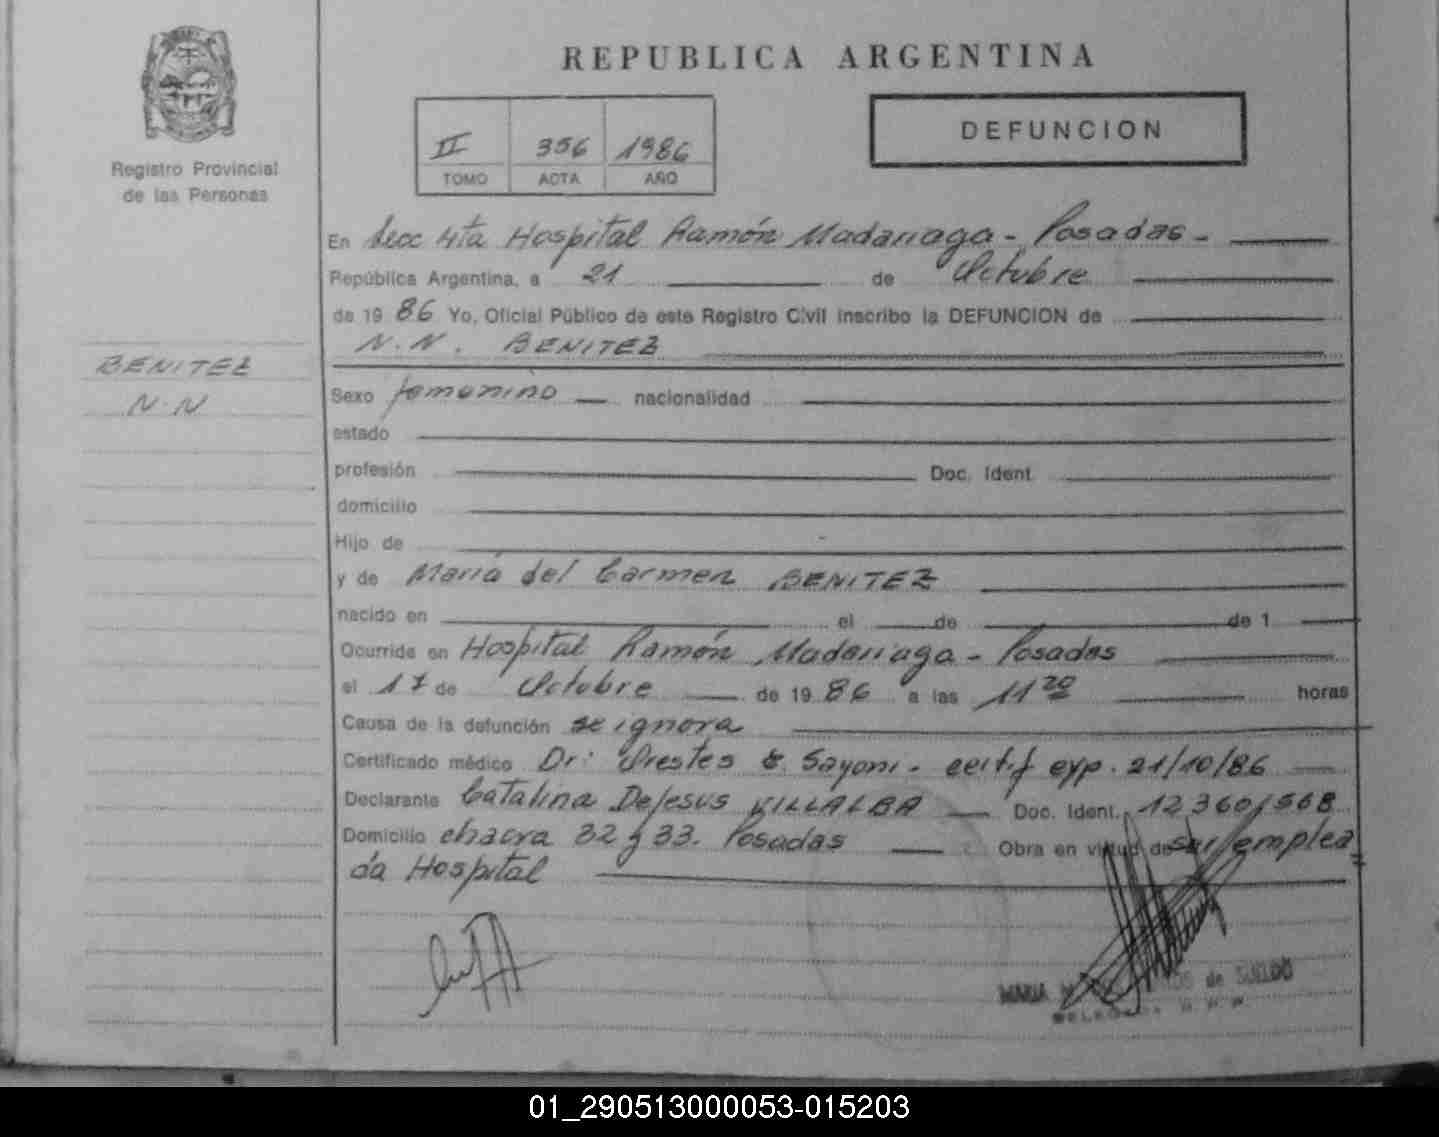 REPUBLICA ARGENTINA
Registro Provincial
de las Personas
II 356 1986
TOMO ACTA AÑO
DEFUNCION
BENITEZ
N.N
En Secc 4ta Hospital Ramón Madariaga - Posadas -
República Argentina, a 21 de Octubre
de 1986 Yo, Oficial Público de este Registro Civil inscribo la DEFUNCION de
N.N. BENITEZ
Sexo femenino nacionalidad
estado
profesión Doc. Ident.
domicilio
Hijo de
y de María del Carmen BENITEZ
nacido en el de de 1
Ocurrida en Hospital Ramón Madariaga - Posadas
el 17 de Octubre de 1986 a las 11 20 horas
Causa de la defunción se ignora
Certificado médico Dr: Orestes Sayoni - certif exp. 21/10/86
Declarante Catalina DeJesus VILLALBA Doc. Ident. 12.360.568
Domicilio chacra 32 y 33. Posadas Obra en virtud de ser emplea
da Hospital
MARIA de SUELDO
01_290513000053-015203